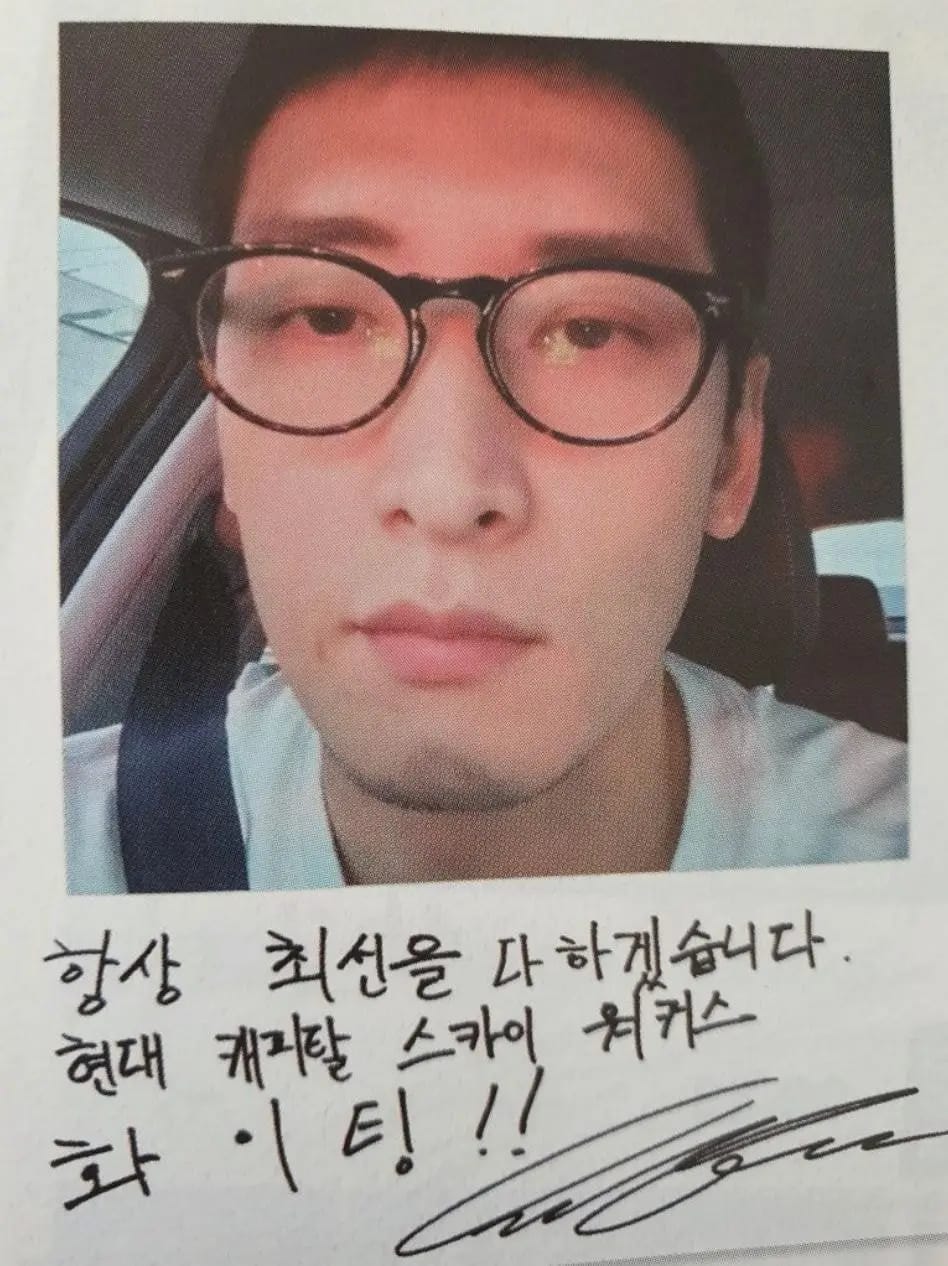 항상 최선을 다하겠습니다.
현대 캐피탈 스카이 워커스
화이팅!!